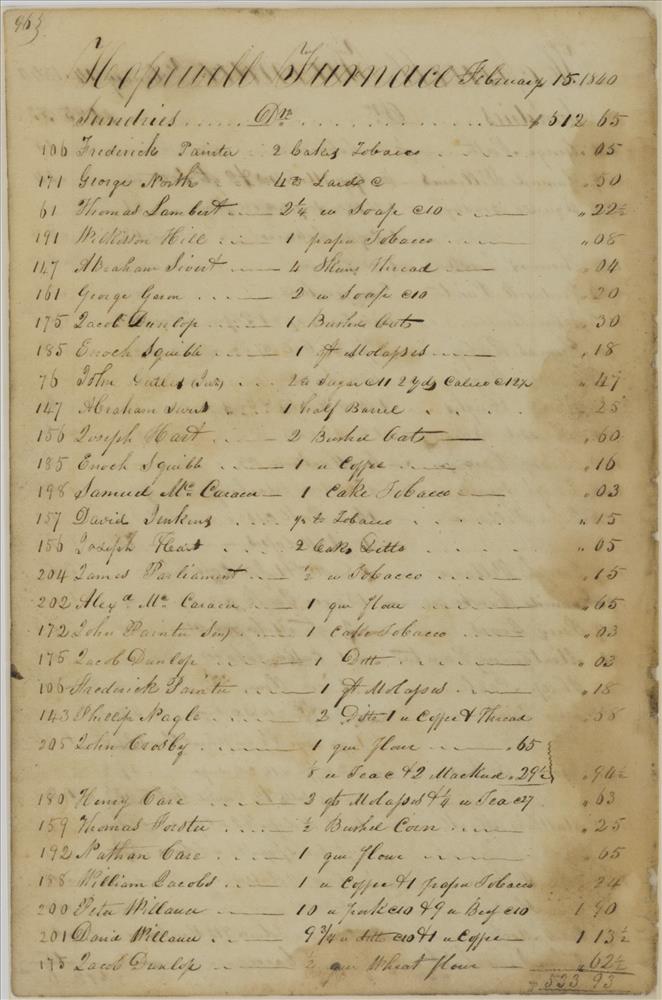 Hopewell Furnace February 15. 1840
Sundries Dr. $ 512 65
106 Frederick Painter 2 Cakes Tobacco .. 05
171 George North 4 lb Lard .. 50
61 Thomas Lambert 2 1/4 " Soap c10 .. 22 1/2
191 Wilkison Hill 1 paper Tobacco .. 08
147 Abraham Sivert 4 Skeins Thread .. 04
161 George Geren 2 " Soap c10 .. 20
175 Jacob Dunlop 1 Bushel Oats .. 30
185 Enoch Squibb 1 qt Molasses .. 18
76 John 2 lb Sugar c11 2 Yds Calico c12 1/2 .. 47
147 Abraham Sivert 1 half Barrel .. 25
156 Joseph Hart 2 Bushel Oats .. 60
185 Enoch Squibb 1 " Coffee .. 16
198 Samuel Mc Caraca 1 Cake Tobacco .. 03
157 David Jenkins lb Tobacco .. 15
156 Joseph Heart 2 Cakes Ditto .. 05
204 James Parliament 1/2 " Tobacco .. 15
202 Alexa Mc Caraca 1 qur flour .. 65
172 John Painter 1 Cake Tobacco .. 03
175 Jacob Dunlop 1 Ditto .. 03
106 Frederick Painter 1 qt Molasses .. 18
143 Philip Nagle 2 Ditto 1 " Coffee & Thread 58
205 John Crosby 1 qur flour .65
1/8 " Tea c & 2 Mackerel .29 1/2 .. 94 1/2
180 Henry Care 2 qts Molasses & 1/4 " Tea c27 .. 63
159 Thomas Forster 1/2 Bushel Corn .. 25
192 Nathan Care 1 qur flour .. 65
188 William Jacobs 1 " Coffee & 1 paper Tobacco .. 24
200 Peter Willauer 10 " Pork c10 & 9 " Beef c10 1 90
201 David Willauer 9 3/4 " Ditto c10 & 1 " Coffee 1 13 1/2
175 Jacob Dunlop 1/2 qur Wheat flour .. 62 1/2
$ 533 93